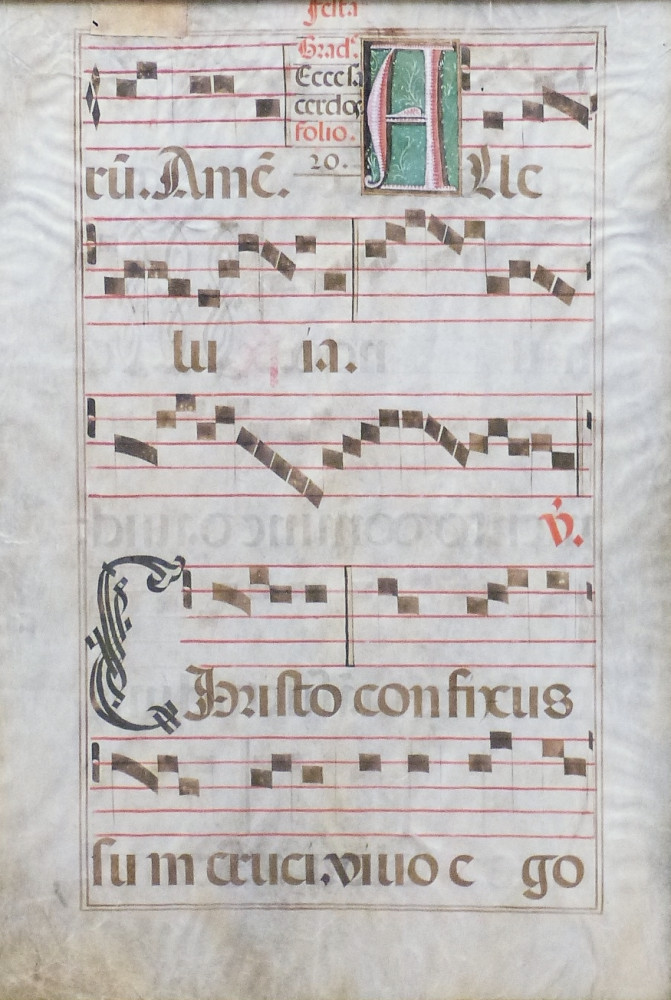 festa
Grad.
Ecce sa
cerdos
folio.
20.
rū. Amē.
Alle
lu ia.
℣.
Christo confixus
sum cruci. vivo e go